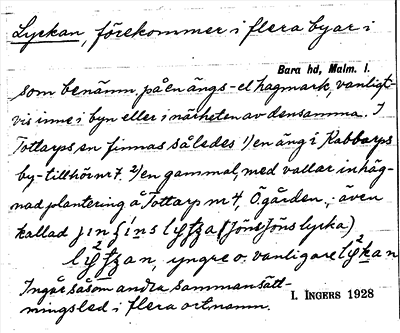 Lyckan, förekommer i flera byar i
Bara hd, Malm. l.
som benämn. på en ängs- el hagmark, vanligt-
vis inne i byn eller i närheten av densamma. I
Tottarps sn finnas således 1) en äng i Kabbarps
by tillhör nr 7. 2) en gammal, med vallar inhäg-
nad plantering å Tottarp nr 4, Ögården, även
kallad (Jöns Jöns lycka)
yngre o. vanligare
Ingår såsom andra sammansätt-
ningsled i flera ortnamn.
I. INGERS 1928